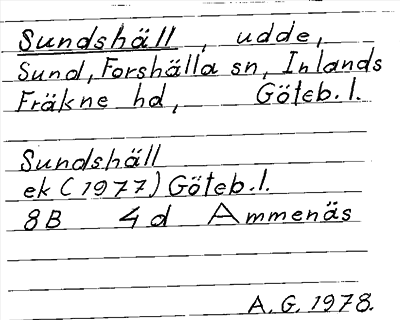 Sundshäll, udde,
Sund, Forshälla sn, Inlands
Fräkne hd, Göteb. l.
Sundshäll
ek (1977) Göteb. l.
8B 4d Ammenäs
A. G. 1978.